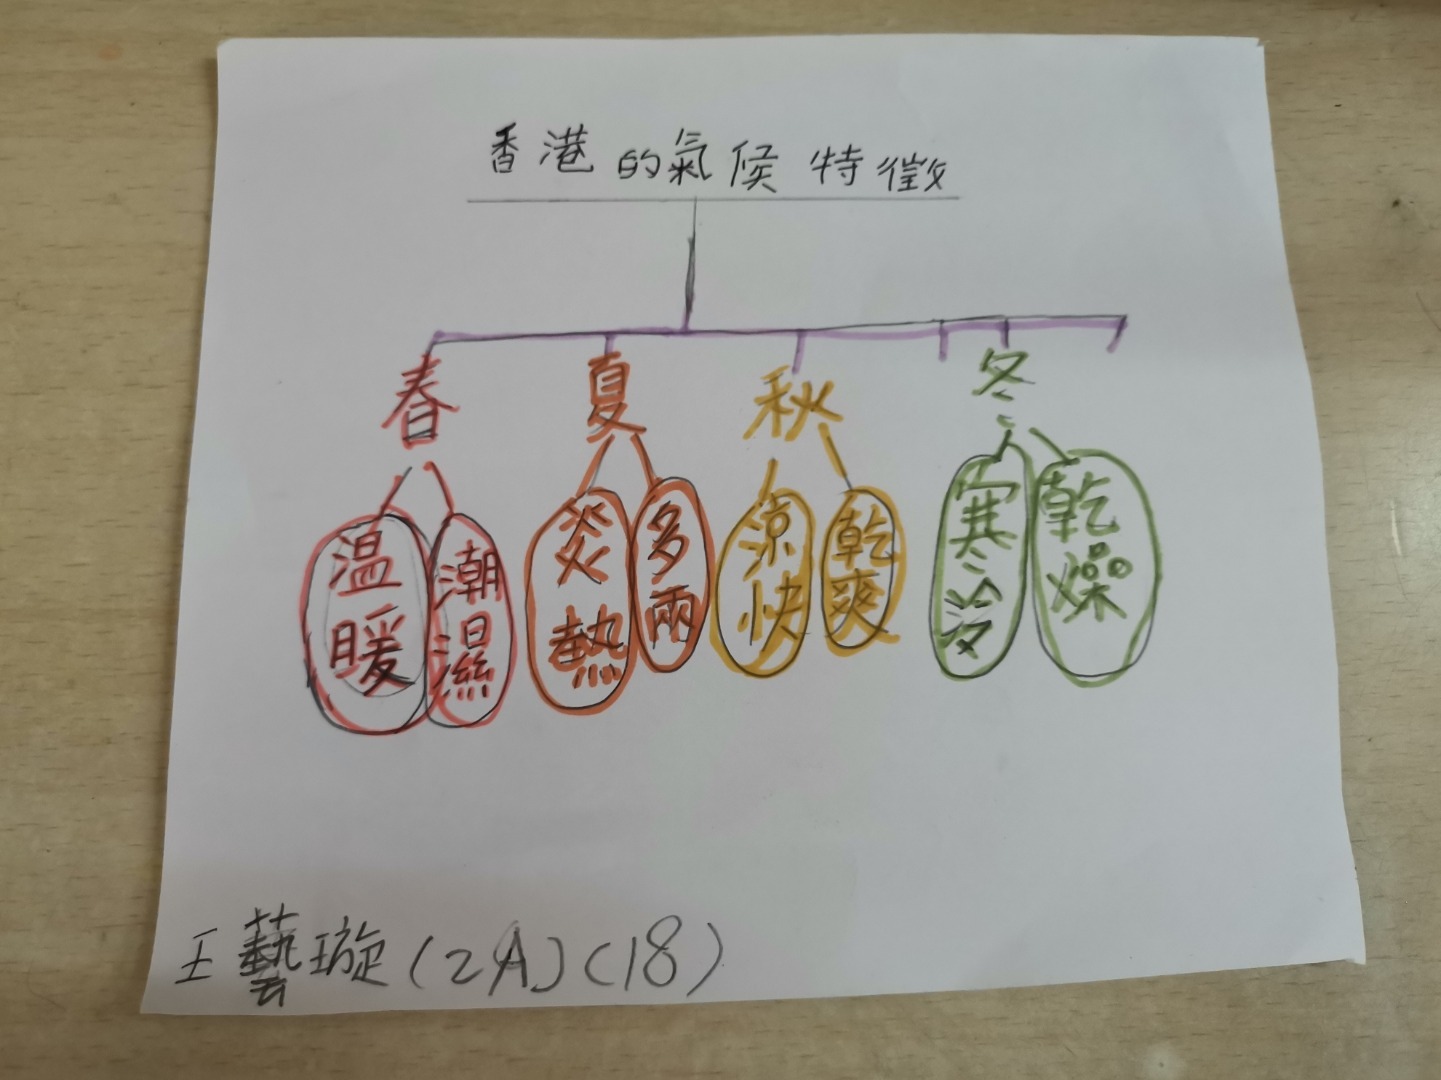 香港的氣候特徵
春 夏 秋 冬
溫暖 潮濕 炎熱 多兩 涼快 乾爽 寒冷 乾燥
王藝璇(2A)(18)